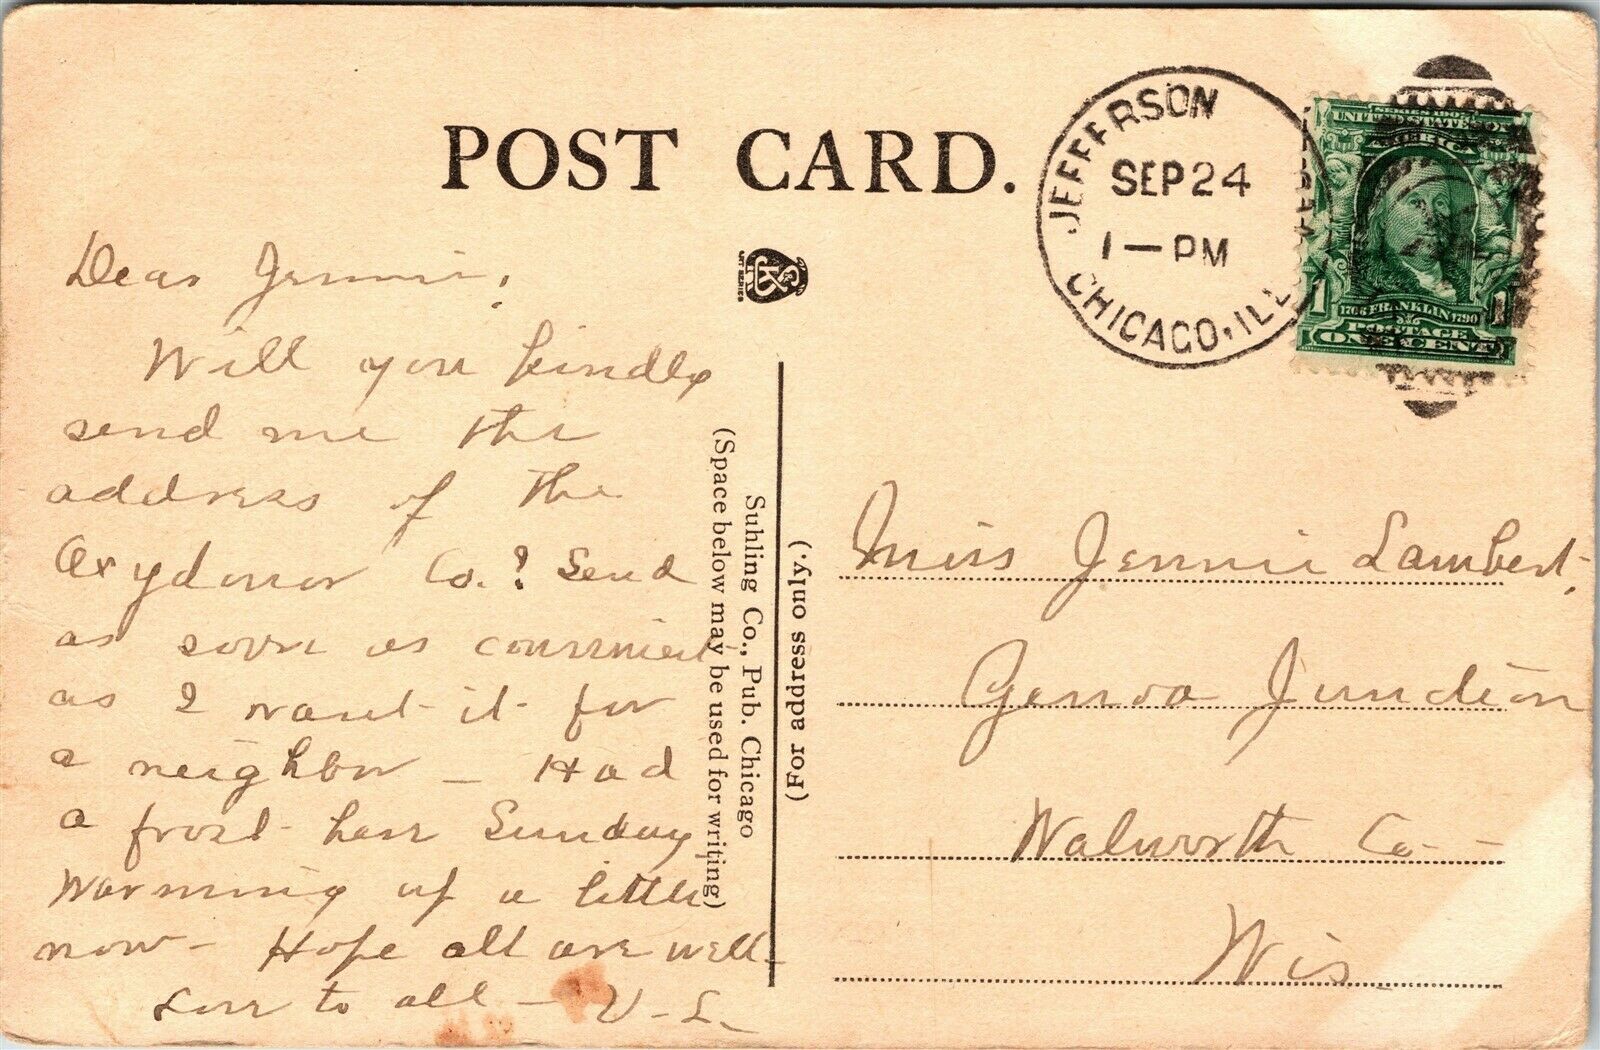 POST CARD.
JEFFERSON
SEP 24
1—PM
CHICAGO, ILL
UNITED STATES
1706 FRANKLIN 1790
1 1
POSTAGE
ONE CENT
Dear Jennie,
Will you kindly
send me the
address of the
Oxydonor Co.? Send
as soon as convenient
as I want it for
a neighbor — Had
a frost here Sunday
Warming up a little
now — Hope all are well —
Love to all — V. L.
Suhling Co., Pub. Chicago
(Space below may be used for writing)
(For address only.)
Miss Jennie Lambert,
Genoa Junction
Walworth Co —
Wis